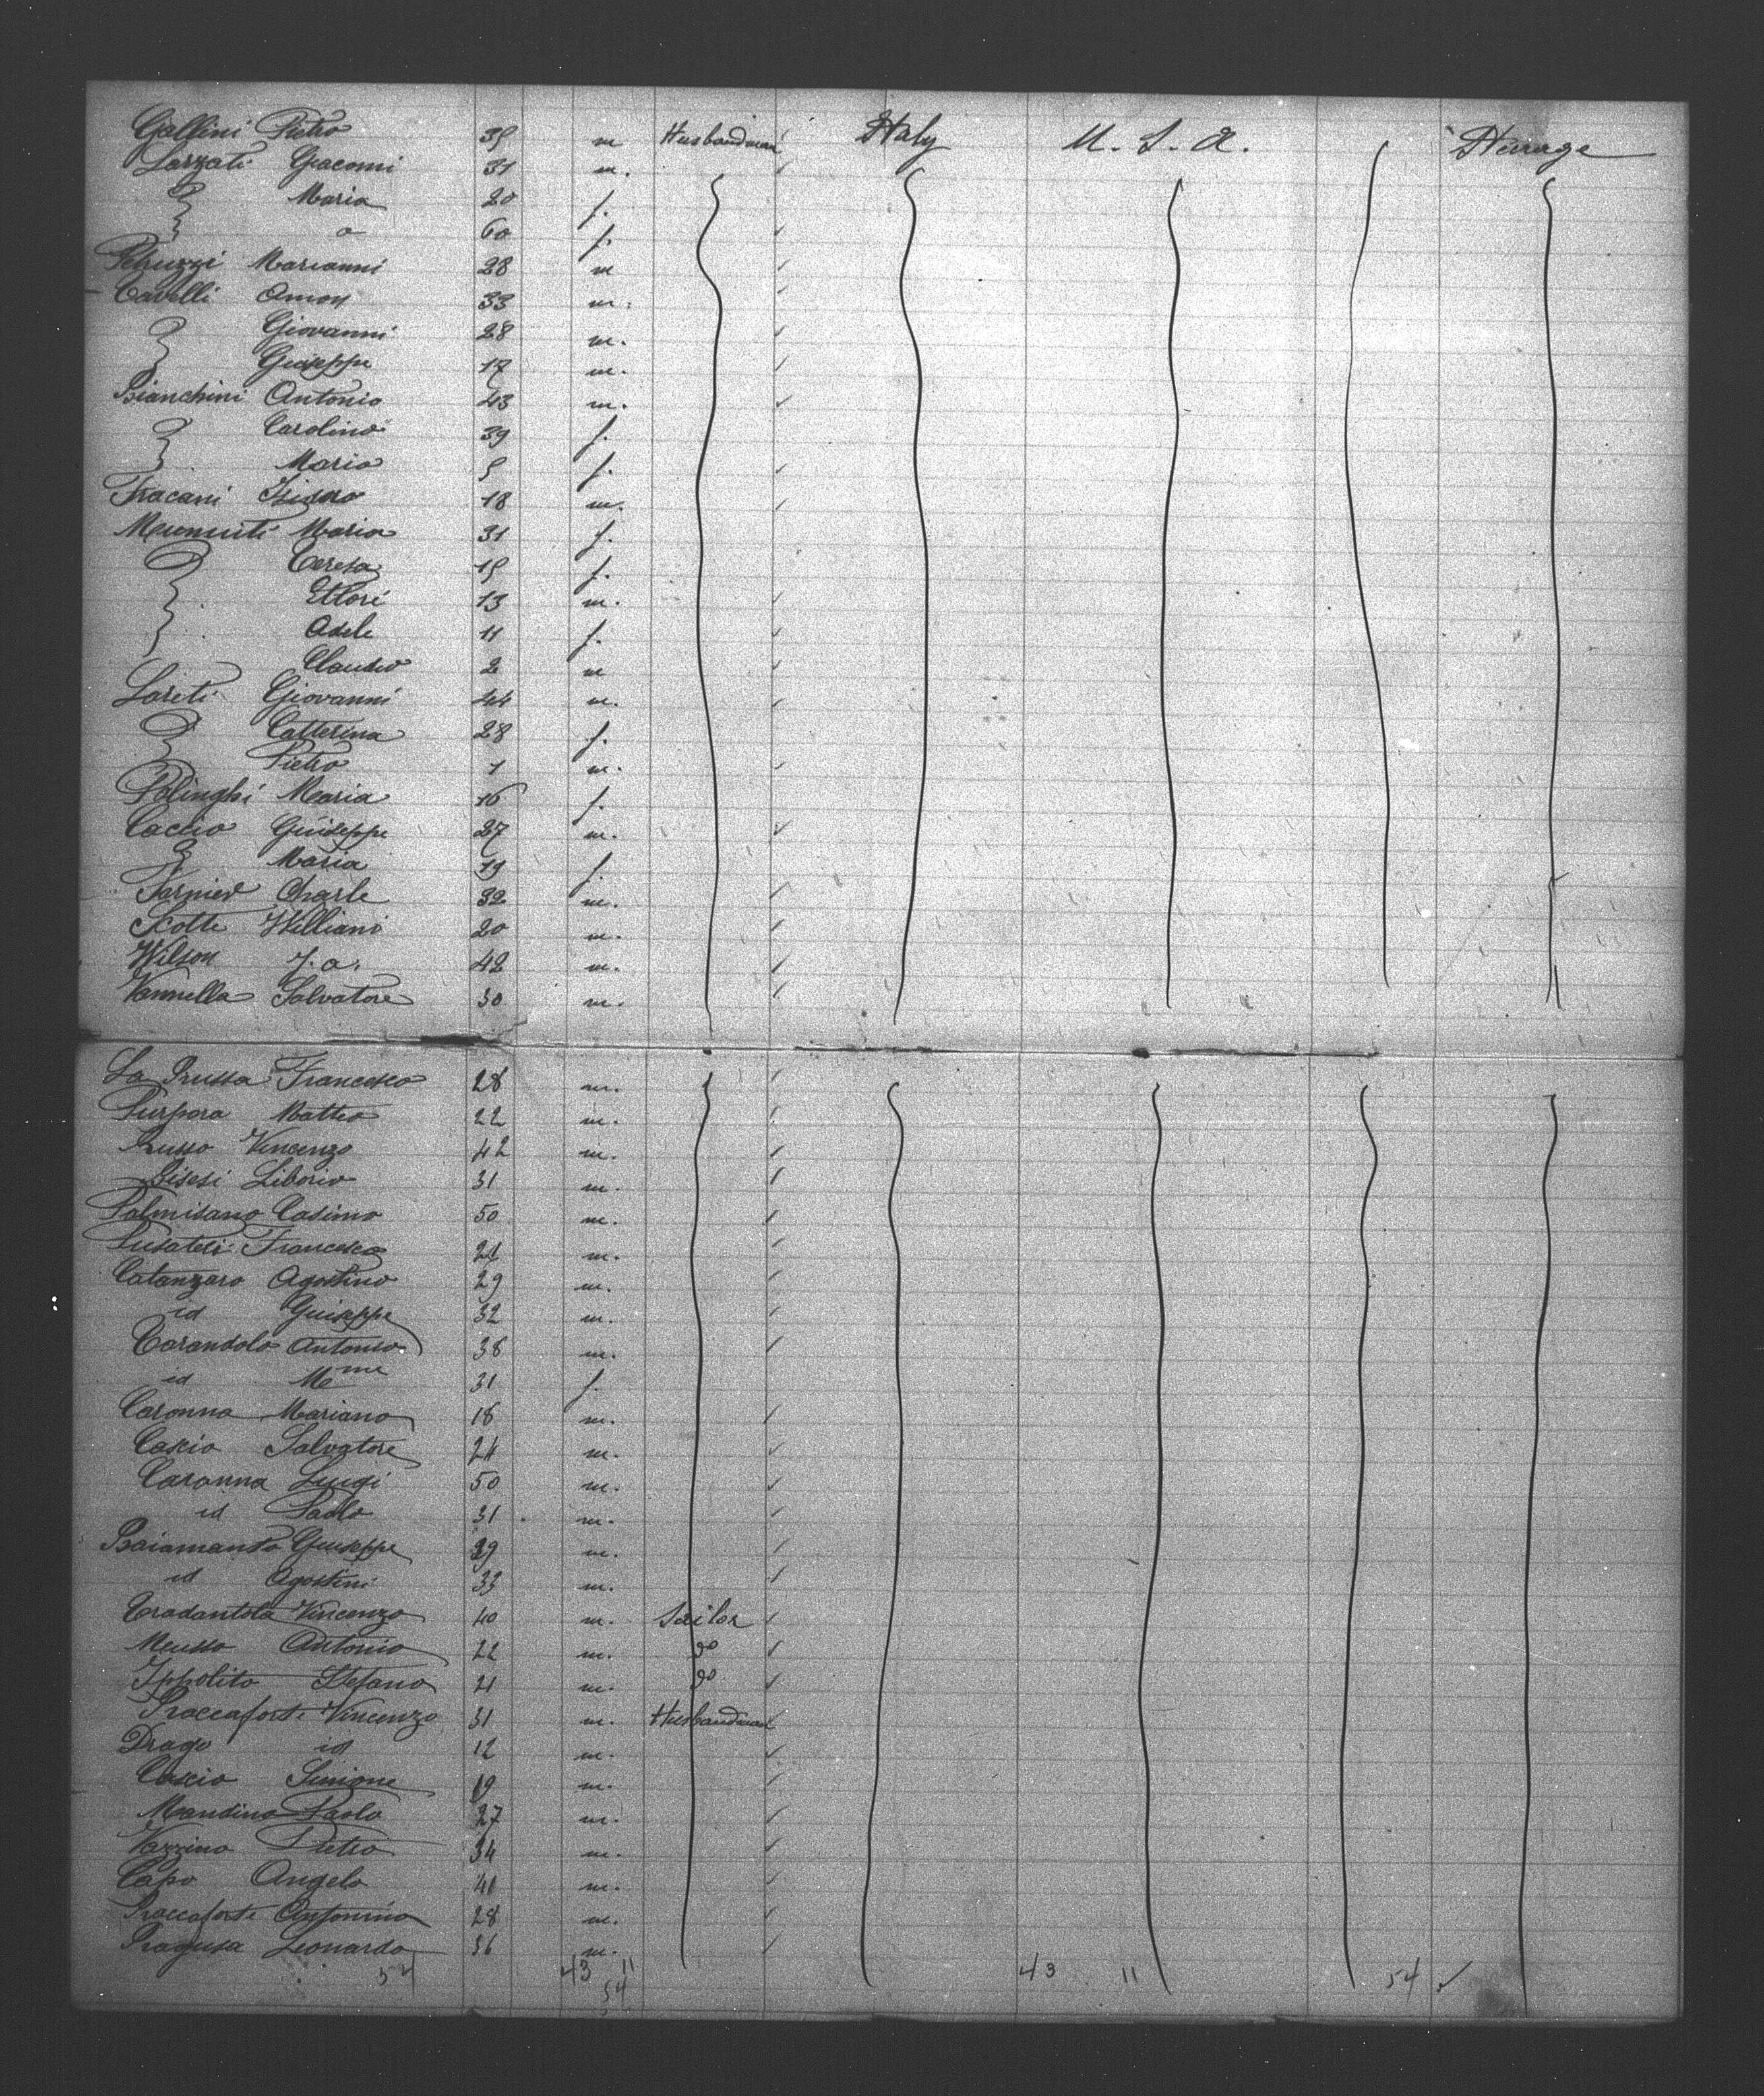 Gallini Pietro 35 m Husbandman Italy U. S. A. Steerage
Larzati Giacomi 31 m.
Maria 20 f.
a 60 f.
Petruzzi Marianni 28 m
Cavelli Amon 33 m.
Giovanni 28 m.
Guiseppe 17 m.
Bianchini Antonio 43 m.
Carolina 39 f.
Maria 5 f.
Fracani Isidoro 18 m.
Maria 31 f.
Teresa 15 f.
Ettori 13 m.
Adele 11 f.
Claudio 2 m
Loreti Giovanni 44 m.
Catterina 28 f.
Pietro 1 m.
Polinghi Maria 16 f.
Caccio Guiseppe 27 m.
Maria 19 f.
Charle 32 m.
Scotte Williani 20 m.
Wilson J. a. 42 m.
Vannella Salvatore 30 m.
La Russa Francesco 28 m.
Purpora Matteo 22 m.
Russo Vincenzo 42 m.
Bisesi Liborio 31 m.
Palmisano Casimo 50 m.
Pusateri Francesco 21 m.
Catanzaro Agostino 29 m.
id Guiseppe 32 m.
Carandolo Antonio 38 m.
id Me me 31 f.
Caronna Mariano 18 m.
Cascio Salvatore 24 m.
Caronna Luigi 50 m.
id Paolo 31 m.
Baiamanto Guiseppe 29 m.
id Agostini 33 m.
Tradantola Vincenzo 40 m. Sailor
Meusso Antonio 22 m. do
Ippolito Stefano 21 m. do
Roccaforte Vincenzo 31 m. Husbandman
Drago id 12 m.
Cascio Simione 19 m.
Mandina Paolo 27 m.
Vazzino Pietro 34 m.
Capo Angelo 41 m.
Roccaforte Antonino 28 m.
Ragusa Leonardo 36 m.
54 43 11 43 11 54
54